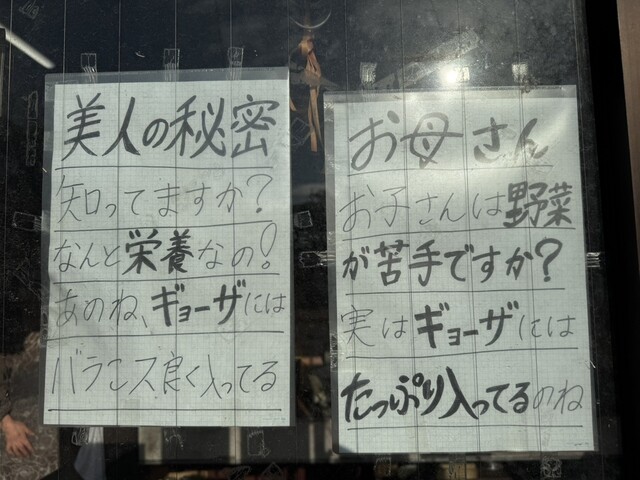 美人の秘密
知ってますか?
なんと栄養なの!
あのね、ギョーザには
バランス良く入ってる
お母さん
お子さんは野菜
が苦手ですか?
実はギョーザには
たっぷり入ってるのね